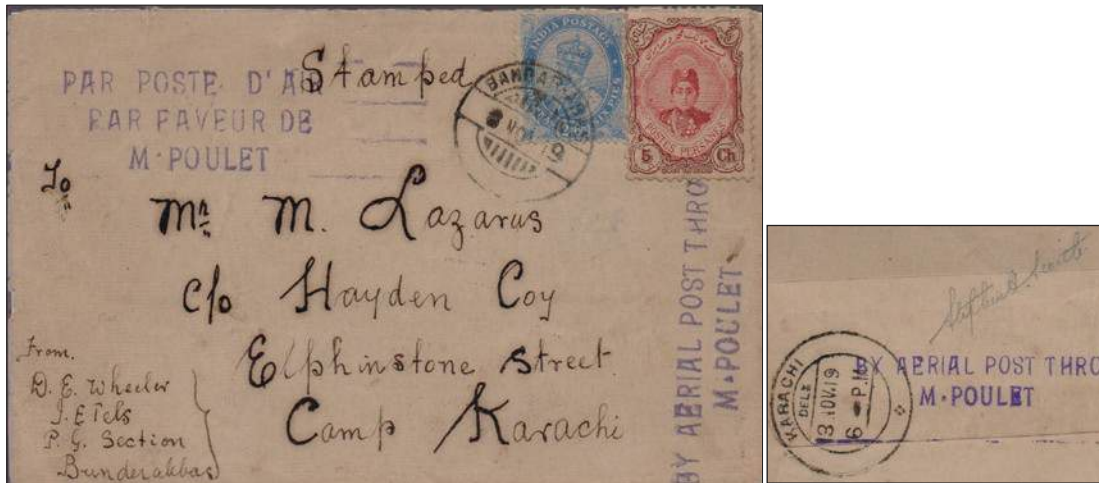 PAR POSTE D'AIR
PAR FAVEUR DE
M. POULET
Stamped
INDIA POSTAGE
BANDAR-ABBAS
NOV 19
POSTES PERSANES
5 Ch
To
Mr. M. Lazarus
c/o Hayden Coy
Elphinstone Street
Camp Karachi
From.
D. E. Wheeler
I. E Tels
P. G. Section
Bunderabbas
BY AERIAL POST THRO
M. POULET
KARACHI
DELY
13 NOV. 19
6 - P.M
BY AERIAL POST THRO
M. POULET